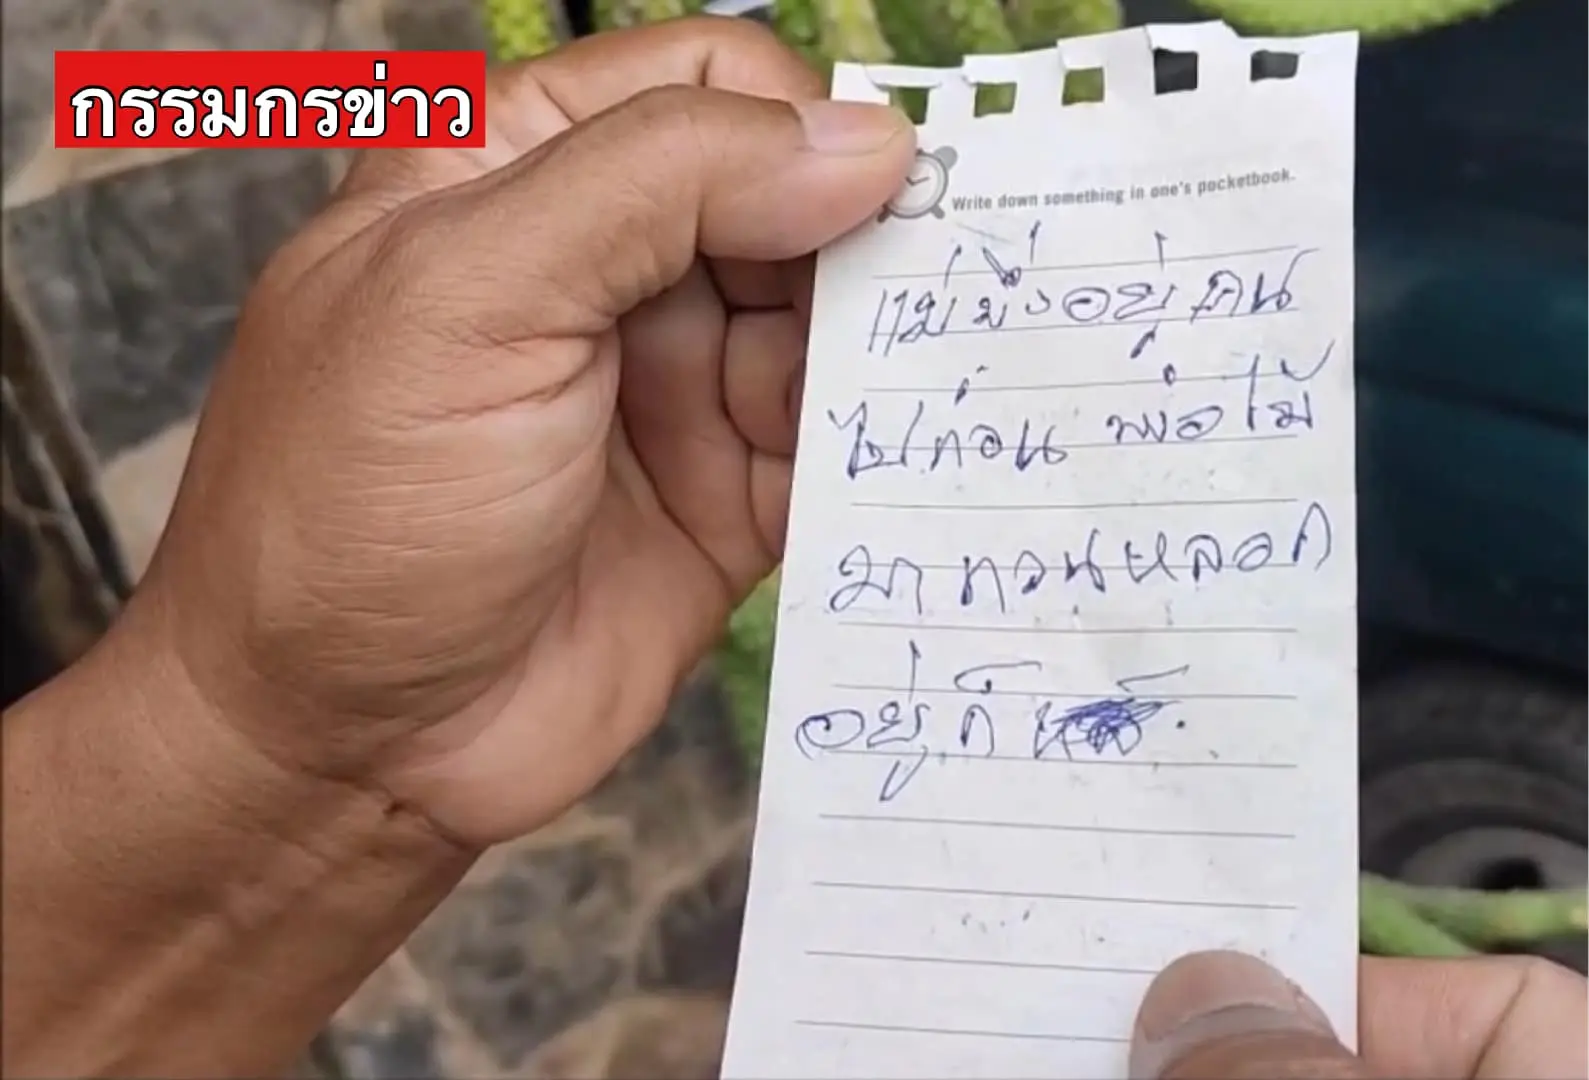 กรรมกรข่าว
Write down something in one's pocketbook.
แม่ อยู่ คน
ไปก่อน พ่อไม่
มา กวนหลอก
อยู่ ก็